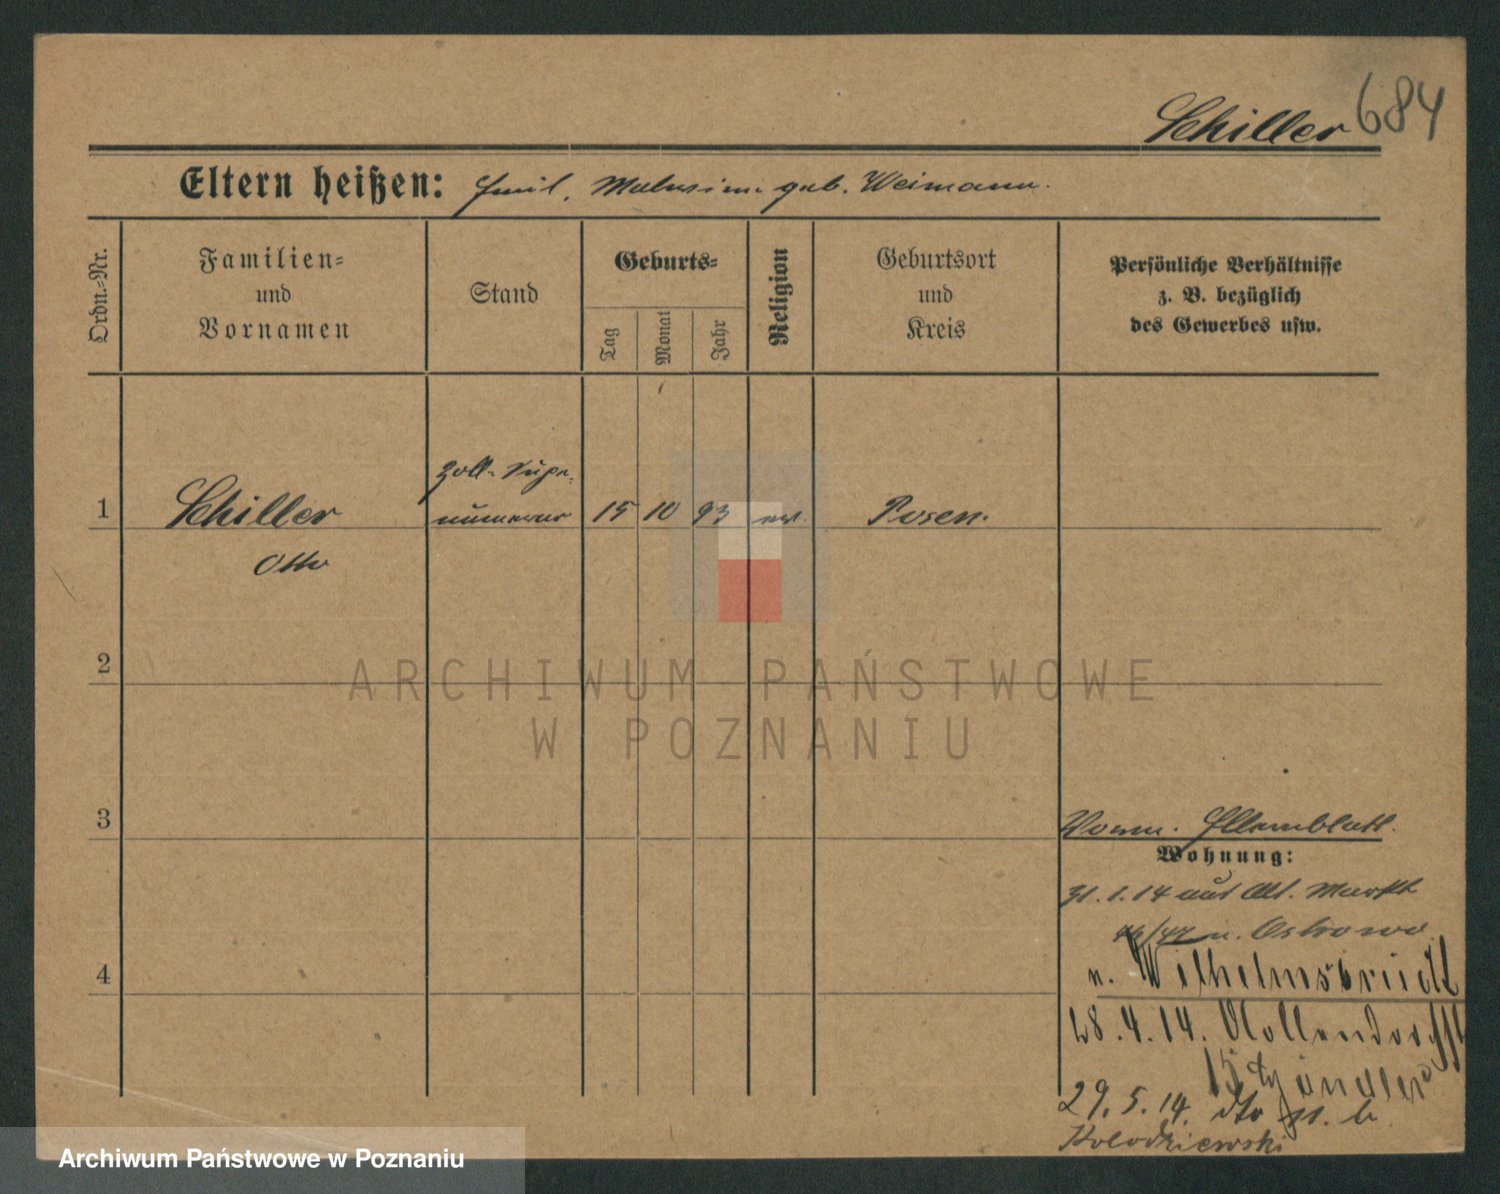 Schiller 684
Eltern heißen: Emil, geb. Weimann.
Ordn.-Nr.
Familien-
und
Vornamen
Stand
Geburts-
Tag
Monat
Jahr
Religion
Geburtsort
und
Kreis
Persönliche Verhältnisse
z. B. bezüglich
des Gewerbes usw.
Zoll-Supe-
1 Schiller numerar 15 10 93 ev. Posen.
Otto
2
3
4
Elternblatt.
Wohnung:
31.1.14 aus Alt. Markt
46/47 n. Ostrowo
n. Wilhelmsbrück
28.4.14. Nollendorffst
15
29.5.14. dto 11. b.
Kolodziewski
ARCHIWUM PAŃSTWOWE
W POZNANIU
Archiwum Państwowe w Poznaniu